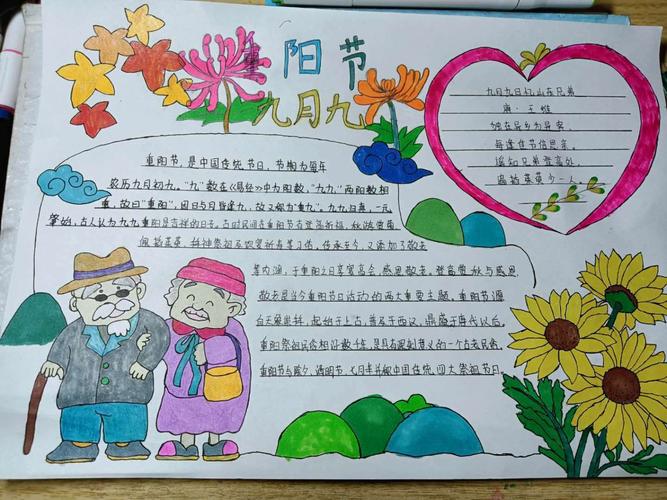 重阳节
九月九
重阳节,是中国传统节日,节期为每年
农历九月初九。"九"数在《易经》中为阳数,"九九"两阳数相
重,故曰"重阳",因日与月皆逢九,故又称为"重九"。九九归真,一元
肇始,古人认为九九重阳是吉祥的日子。古时民间在重阳节有登高祈福、秋游赏菊
佩插茱萸、拜神祭祖及饮宴祈寿等习俗。传承至今,又添加了敬老
等内涵,于重阳之日享宴高会,感恩敬老。登高赏秋与感恩
敬老是当今重阳节日活动的两大重要主题。重阳节源
自天象崇拜,起始于上古,普及于西汉,鼎盛于唐代以后。
重阳祭祖民俗相沿数千年,是具有深刻意义的一个古老民俗。
重阳节与除夕、清明节、七月半并称中国传统四大祭祖节日。
九月九日忆山东兄弟
唐·王维
独在异乡为异客,
每逢佳节倍思亲。
遥知兄弟登高处,
遍插茱萸少一人。